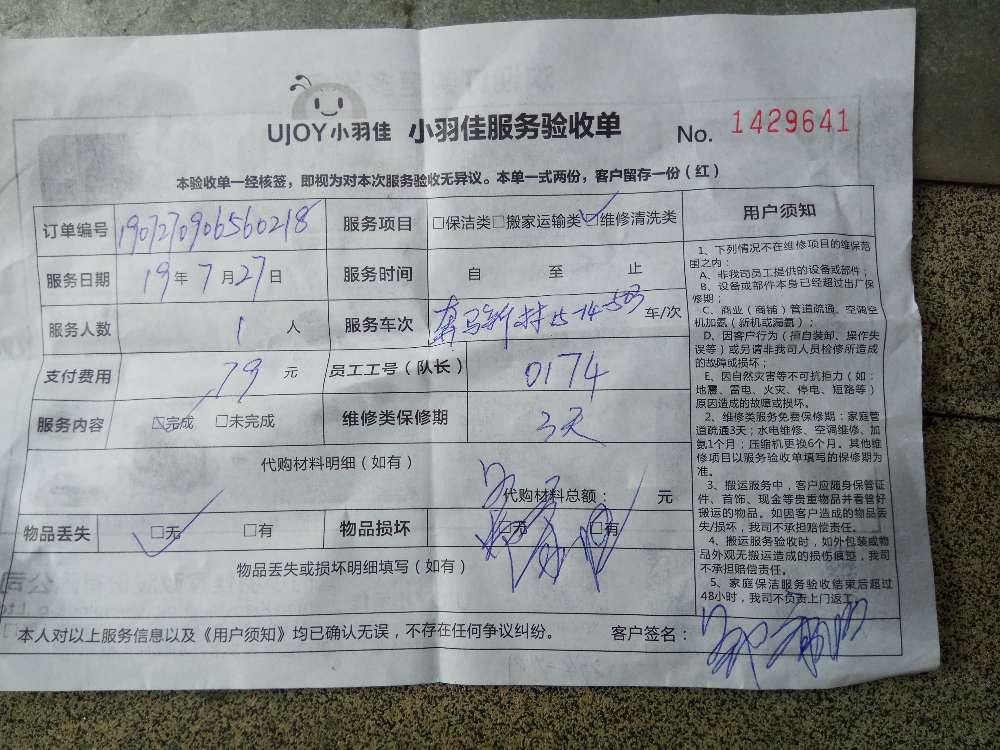 UJOY小羽佳 小羽佳服务验收单 No. 1429641
本验收单一经核签，即视为对本次服务验收无异议。本单一式两份，客户留存一份（红）
订单编号 1907270906560218 服务项目 □保洁类□搬家运输类□维修清洗类
服务日期 19年7月27日 服务时间 自 至 止
服务人数 1 人 服务车次 新村 车/次
支付费用 79 元 员工工号（队长） 0174
服务内容 □完成 □未完成 维修类保修期 3天
代购材料明细（如有）
代购材料总额： 元
物品丢失 □无 □有 物品损坏 □无 □有
物品丢失或损坏明细填写（如有）
本人对以上服务信息以及《用户须知》均已确认无误，不存在任何争议纠纷。 客户签名：
用户须知
1、下列情况不在维修项目的维保范
围之内：
A、非我司员工提供的设备或部件；
B、设备或部件本身已经超过出厂保
修期；
C、商业（商铺）管道疏通、空调空
机加氨（新机或漏氨）；
D、因客户行为（擅自装卸、操作失
误等）或另请非我司人员检修所造成
的故障或损坏；
E、因自然灾害等不可抗拒力（如：
地震、雷电、火灾、停电、短路等）
原因造成的故障或损坏。
2、维修类服务免费保修期：家庭管
道疏通3天；水电维修、空调维修、加
氨1个月；压缩机更换6个月。其他维
修项目以服务验收单填写的保修期为
准。
3、搬运服务中，客户应随身保管证
件、首饰、现金等贵重物品并看管好
搬运的物品。如因客户造成的物品丢
失/损坏，我司不承担赔偿责任。
4、搬运服务验收时，如外包装或物
品外观无搬运造成的损伤痕迹，我司
不承担赔偿责任。
5、家庭保洁服务验收结束后超过
48小时，我司不负责上门返工。